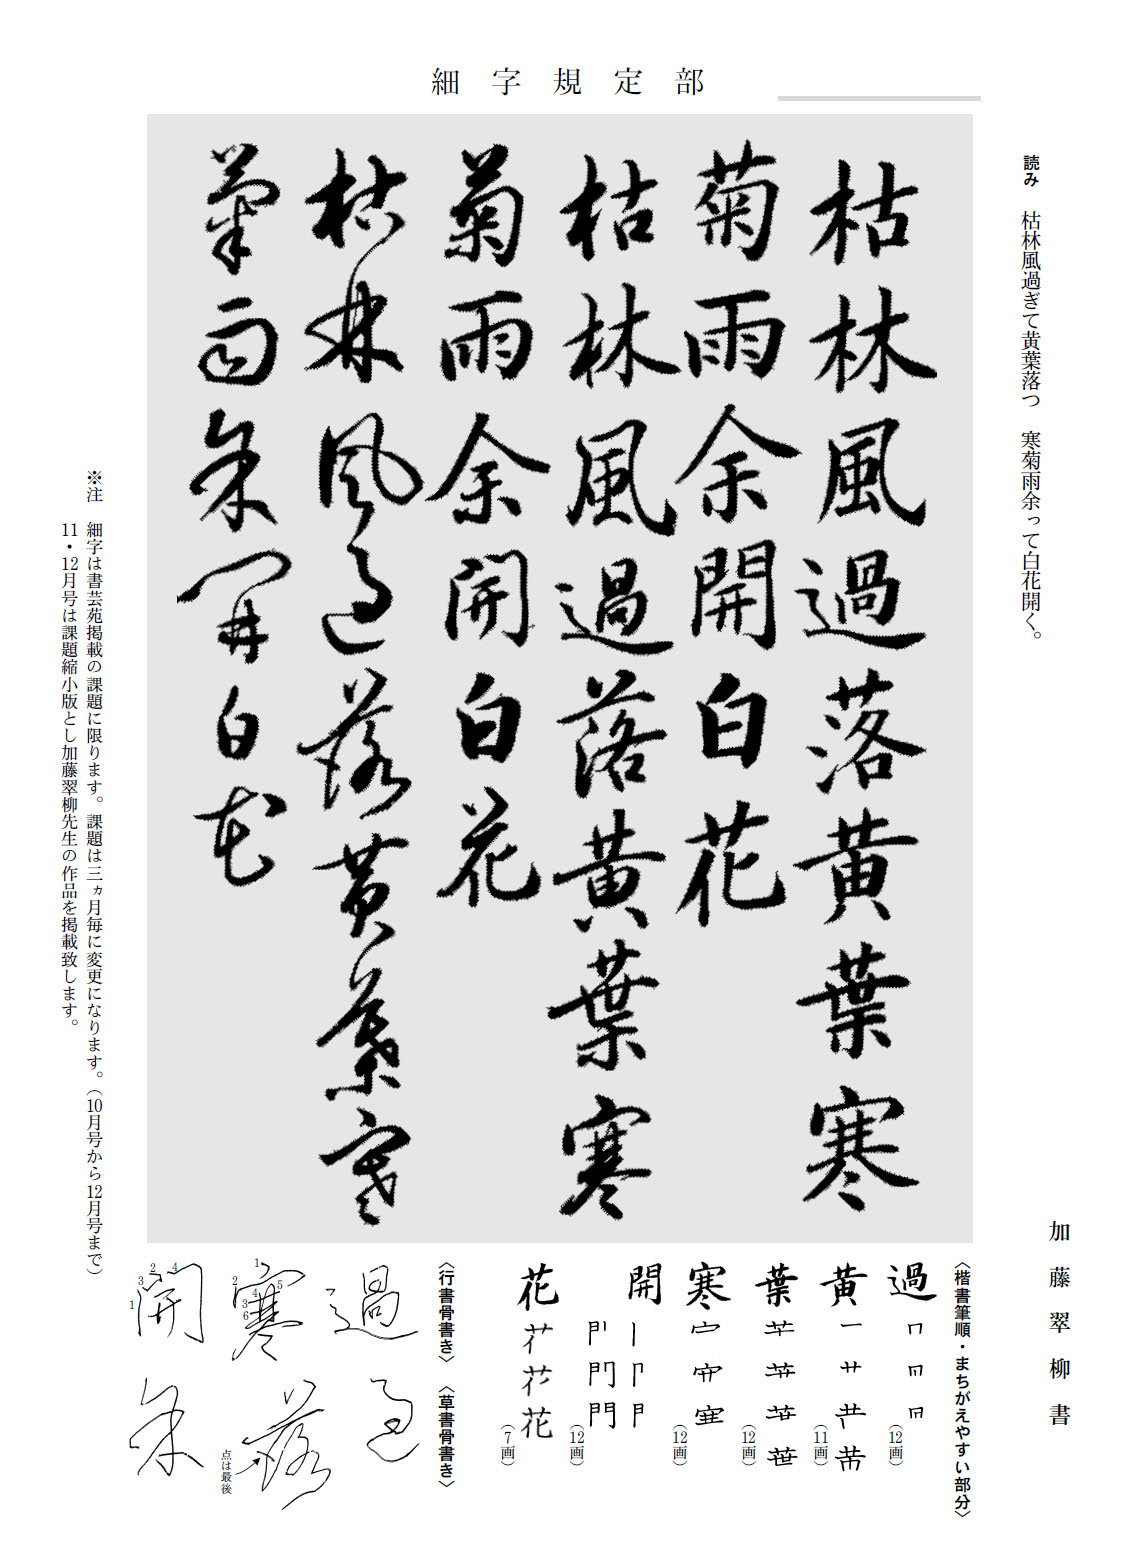 細字規定部
読み　枯林風過ぎて黄葉落つ　寒菊雨余って白花開く。
加藤翠柳書
枯林風過落黄葉寒
菊雨余開白花
枯林風過落黄葉寒
菊雨余開白花
枯林風過落黄葉寒
菊雨余開白花
〈楷書筆順・まちがえやすい部分〉
過
(12画)
黄
(11画)
葉
(12画)
寒
(12画)
開
(12画)
花
(7画)
〈行書骨書き〉
過
寒
1 2 3 4 5 6
開
1 2 3 4
〈草書骨書き〉
過
落
点は最後
余
※注　細字は書芸苑掲載の課題に限ります。課題は三ヵ月毎に変更になります。(10月号から12月号まで)
11・12月号は課題縮小版とし加藤翠柳先生の作品を掲載致します。